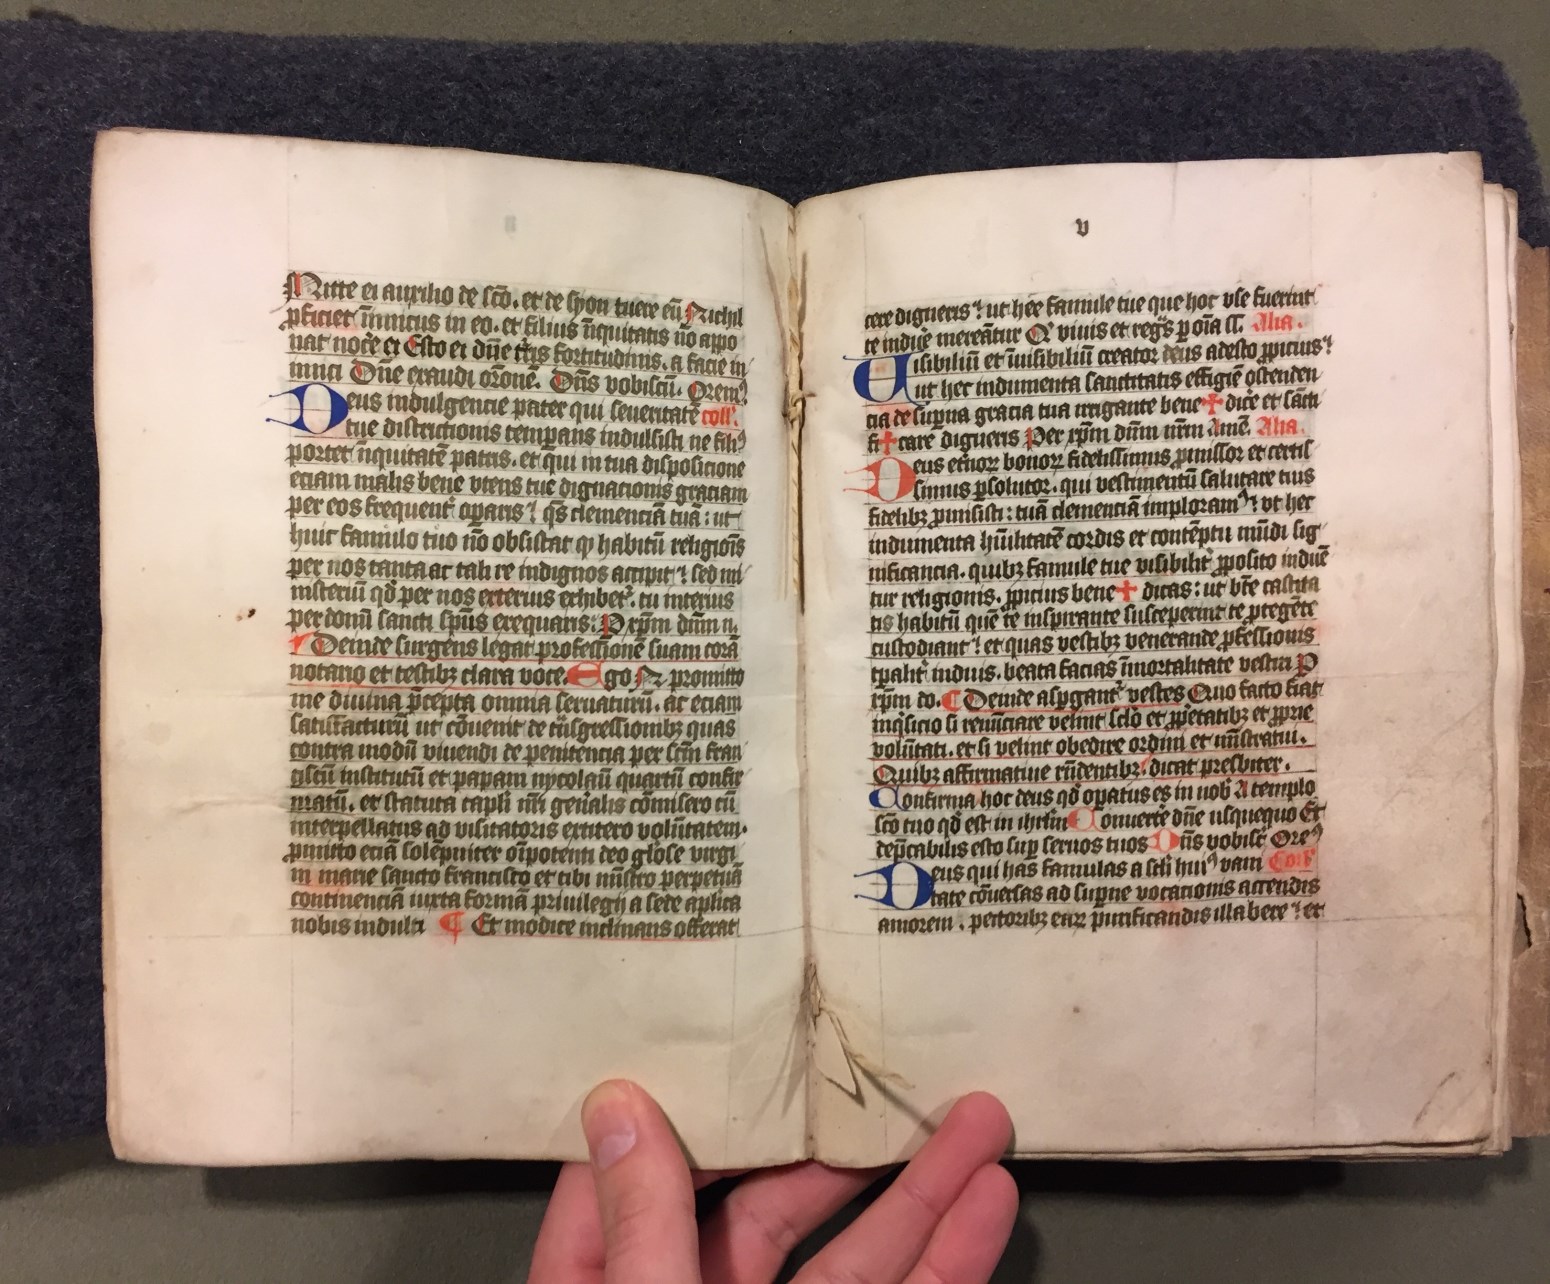 Mitte ei auxilio de sc̄o. et de syon tuere eū Nichil
ꝓficiet īimicus in eo. et filius īiquitatis nō appo
nat noce͛ ei Esto ei dn̄e tᷓris fortitudinis. a facie in
imici Dn̄e exaudi or̄onē. Dn̄s vobiscū. Oremꝰ
Deus indulgencie pater qui seueritatē coll'.
tue districtionis temperans indulsisti ne filiꝰ
portet īiquitatē patris. et qui in tua disposicione
eciam malis bene vtens tue dignacionis graciam
per eos frequent͛ oparis qs̄ clemenciā tuā: ut
huic famulo tuo nō obsistat ꝙ habitū religiōis
per nos tanta ac tali re indignos accipit sed mi
nisteriū qd̄ per nos exterius exhibet͛. tu interius
per donū sancti sp̄us exequaris: P xp̄m dn̄m n.
Deinde surgens legat professionē suam corā
notario et testibꝫ clara voce. Ego N. promitto
me diuina p̄cepta omnia seruaturū. ac eciam
satisfacturū ut cōuenit de tᷓnsgressionibꝫ quas
contra modū viuendi de penitencia per sc̄m fran
ciscū institutū et papam nycolaū quartū confir
matū. et statuta capl̓i nr̄i gen̄alis cōmisero cū
interpellatus ad visitatoris extitero volūtatem.
ꝓmitto eciā solēpniter oīpotenti deo gl̓ose virgi
ni marie sancto francisco et tibi mīstro perpetuā
continenciā iuxta formā priuilegij a sede aplica
nobis indulti ¶ Et modice inclinans offerat
v
cere digneris ut hee famule tue que hoc vse fuerint
te indue͛ mereātur Q' viuis et regͥs p oīa ss. Alia.
Uisibiliū et īuisibiliū creator deus adesto ꝓpicius
ut hec indumenta sanctitatis effigiē ostenden
cia de sup̱na gracia tua irrigante bene ✝ dice͛ et sc̄ti
fi ✝ care digneris Per xp̄m dn̄m nr̄m Amē. Alia.
Deus et͛noꝝ bonoꝝ fidelissimus ꝓmissor et certis
simus ꝑsolutor. qui vestimentū salutare tuis
fidelibꝫ ꝓmisisti: tuā clemenciā imploramꝰ: vt hec
indumenta hūilitatē cordis et contēptū mūdi sig
nificancia. quibꝫ famule tue visibilit͛ ꝓposito induē
tur religionis. ꝓpicius bene ✝ dicas: ut bt̄e castita
tis habitū quē te inspirante susceperint te ꝓtege͛te
custodiant et quas vestibꝫ venerande ꝓfessionis
tp̄alit͛ induis. beata facias īmortalitate vestiri P
xp̄m do. ¶ Deinde aspgant͛ vestes Quo facto fiat
inq̇sicio si renūciare velint scl̓o et ꝓpetatibꝫ et ꝓprie
volūtati. et si velint obedire ordini et mīstratui.
Quibꝫ affirmatiue rn̄dentibꝫ. dicat presbiter.
Confirma hoc deus qd̄ opatus es in nob̄ A templo
sc̄o tuo qd̄ est in ihrl̄m Conuerte dn̄e usquequo Et
dep̄cabilis esto sup̱ seruos tuos Dn̄s vobisc̄ Oreꝰ
Deus qui has famulas a scl̓i huiꝰ vani Coll'
tate cōuersas ad sup̱ne vocacionis accendis
amorem. pectoribꝫ eaꝝ purificandis illabere et